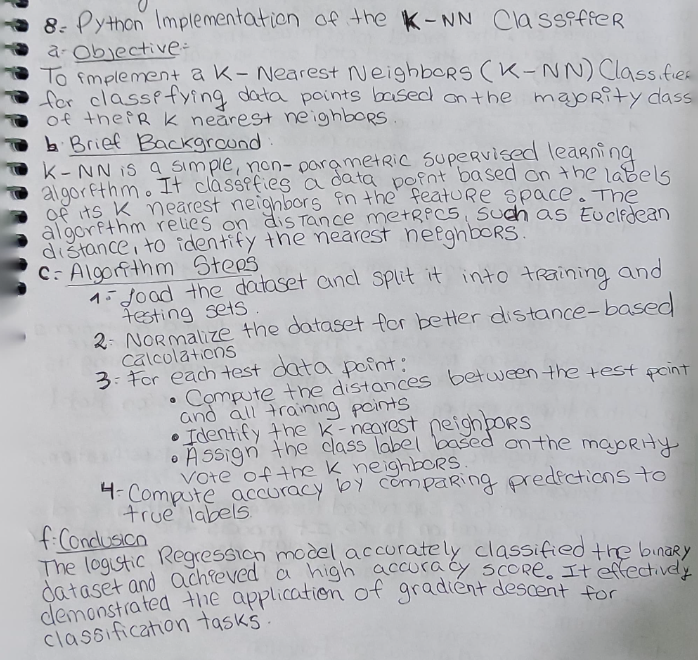 8:- Python Implementation of the K-NN Classifier
a- Objective:-
To implement a K-Nearest Neighbors (K-NN) Classifier
for classifying data points based on the majority class
of their K nearest neighbors.
b. Brief Background:
K-NN is a simple, non-parametric supervised learning
algorithm. It classifies a data point based on the labels
of its K nearest neighbors in the feature space. The
algorithm relies on distance metrics, such as Euclidean
distance, to identify the nearest neighbors.
c:- Algorithm Steps
1:- Load the dataset and split it into training and
testing sets.
2:- Normalize the dataset for better distance-based
calculations
3:- For each test data point:
• Compute the distances between the test point
and all training points
• Identify the K-nearest neighbors
• Assign the class label based on the majority
vote of the K neighbors.
4- Compute accuracy by comparing predictions to
true labels
f: Conclusion
The logistic Regression model accurately classified the binary
dataset and achieved a high accuracy score. It effectively
demonstrated the application of gradient descent for
classification tasks.